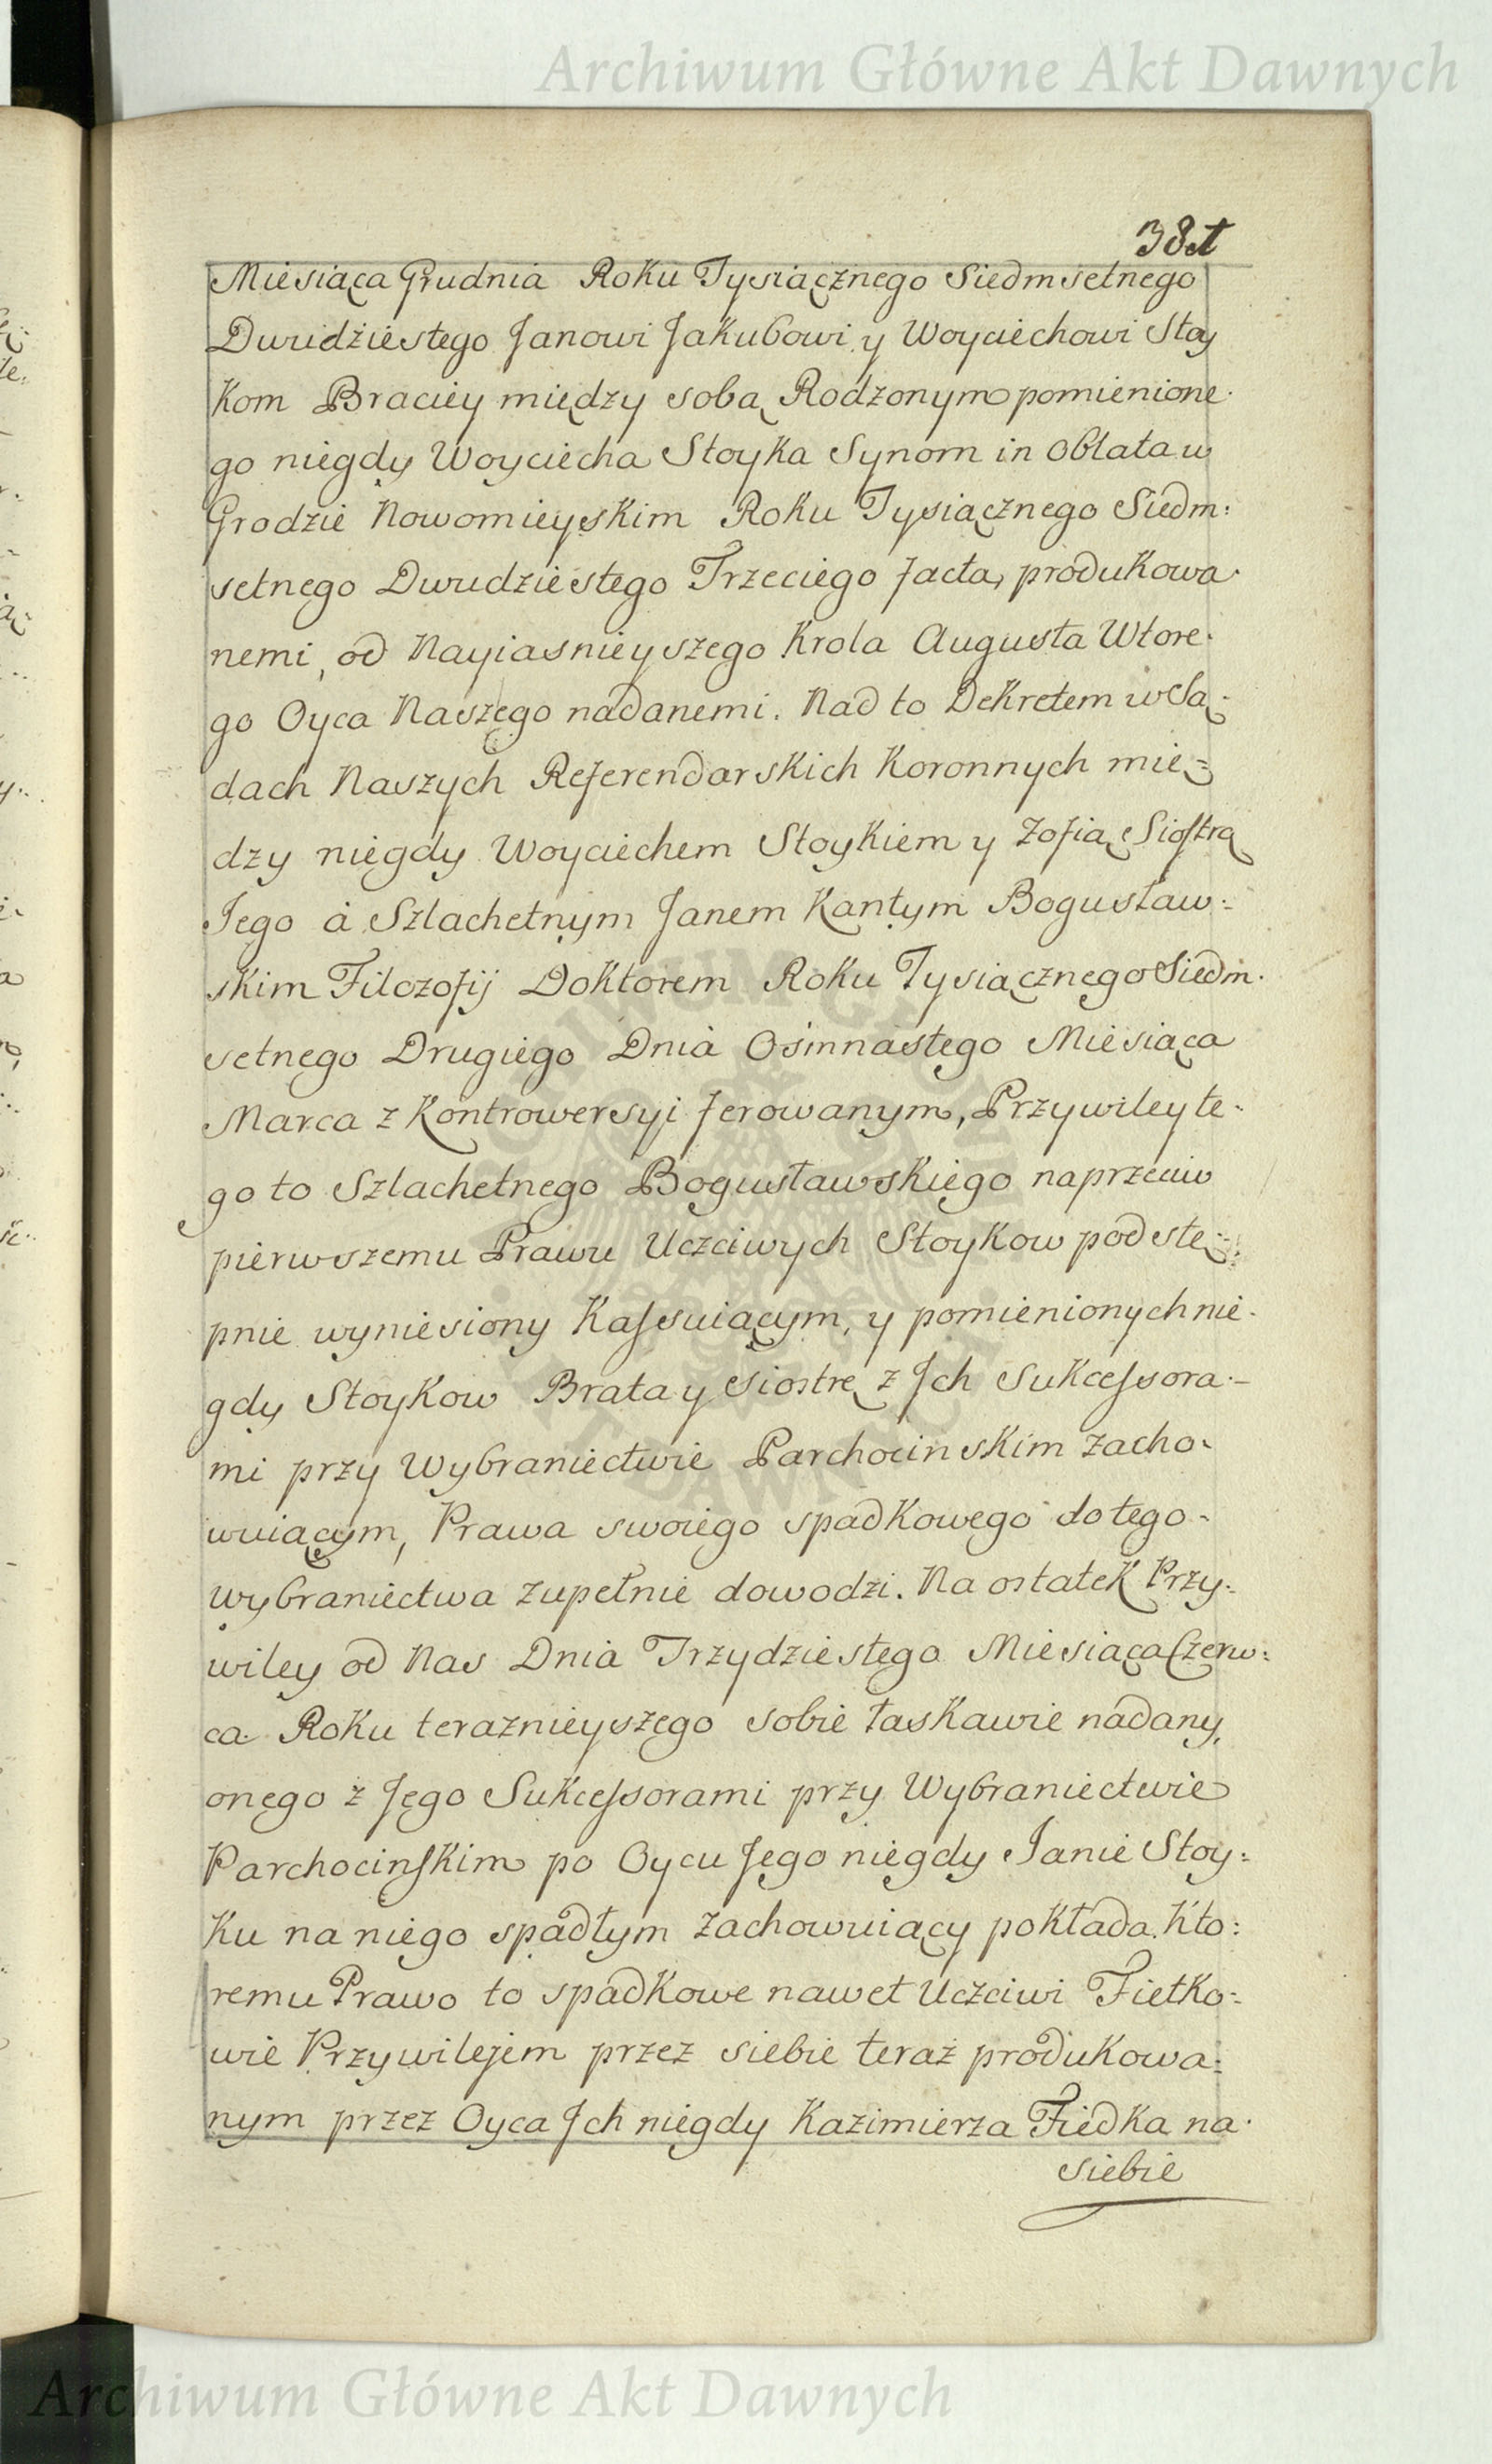 Archiwum Główne Akt Dawnych
381
Miesiąca Grudnia Roku Tysiącznego Siedmsetnego
Dwudziestego Janowi Jakubowi y Woyciechowi Stoy
kom Braciey między sobą Rodzonym pomienione-
go niegdy Woyciecha Stoyka Synom in Oblata w
Grodzie Nowomieyskim Roku Tysiącznego Siedm:
setnego Dwudziestego Trzeciego facta, produkowa-
nemi, od Nayiasnieyszego Krola Augusta Wtore-
go Oyca Naszego nadanemi. Nad to Dekretem w Są-
dach Naszych Referendarskich Koronnych mię=
dzy niegdy Woyciechem Stoykiem y Zofią Siostrą
Jego á Szlachetnym Janem Kantym Bogusław:
skim Filozofij Doktorem Roku Tysiącznego Siedm-
setnego Drugiego Dnia Osmnastego Miesiąca
Marca z Kontrowersyi ferowanym, Przywiley te-
go to Szlachetnego Bogusławskiego naprzeciw
pierwszemu Prawu Uczciwych Stoykow podstę-
pnie wyniesiony Kassuiącym, y pomienionych nie-
gdy Stoykow Brata y Siostrę z Jch Sukcessora-
mi przy Wybraniectwie Parchocinskim zacho-
wuiącym, Prawa swoiego spadkowego do tego-
wybraniectwa zupełnie dowodzi. Na ostatek Przy-
wiley od Nas Dnia Trzydziestego Miesiąca Czerw:
ca Roku teraznieyszego sobie łaskawie nadany,
onego z Jego Sukcessorami przy Wybraniectwie
Parchocinskim po Oycu Jego niegdy Janie Stoy:
ku na niego spadłym zachowuiący pokłada. Kto:
remu Prawo to spadkowe nawet Uczciwi Fietko:
wie Przywilejem przez siebie teraz produkowa:
nym przez Oyca Jch niegdy Kazimierza Fiedka na-
siebie
Archiwum Główne Akt Dawnych